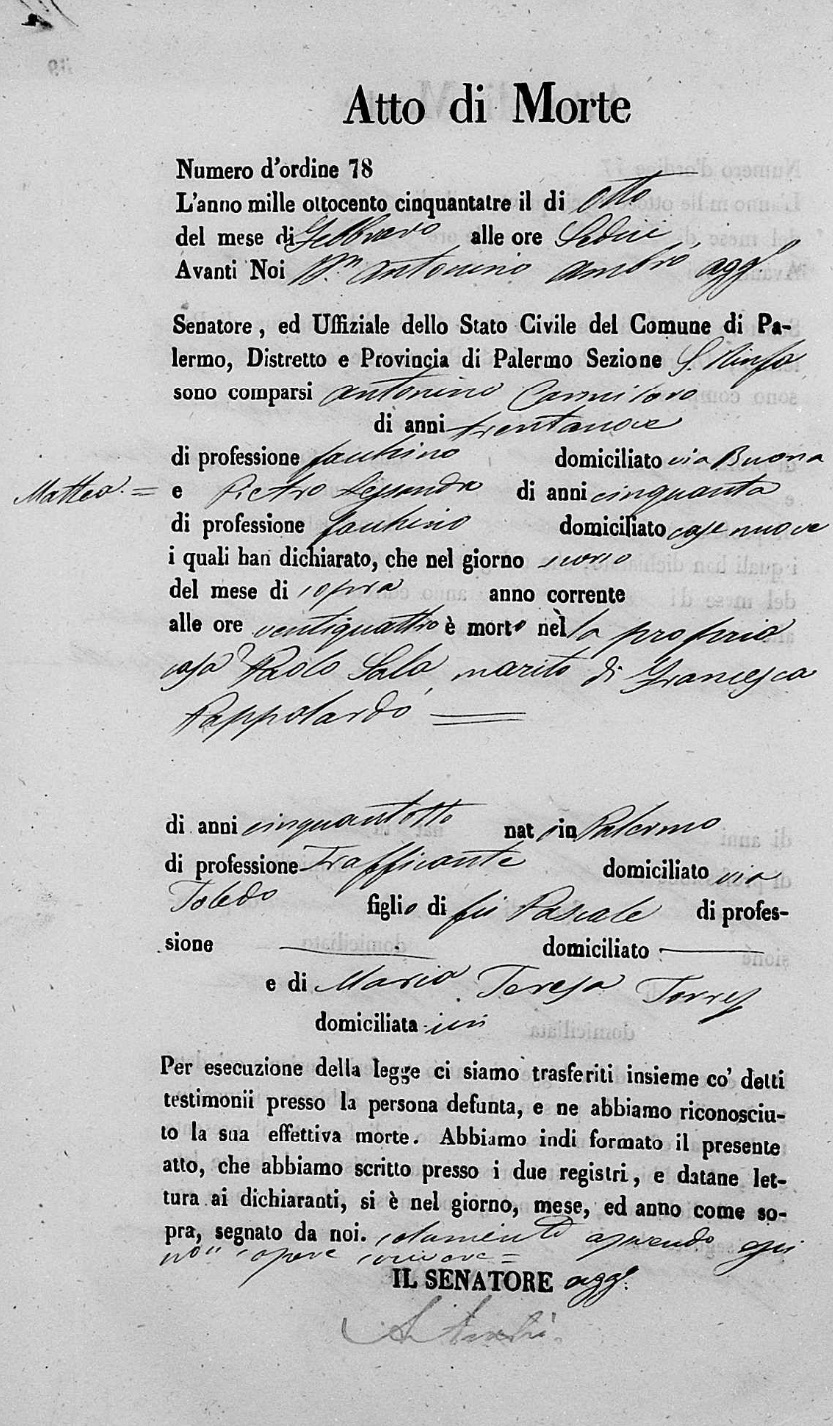 Atto di Morte
Numero d'ordine 78
L'anno mille ottocento cinquantatre il di otto
del mese di Febbraro alle ore Sedici
Avanti Noi Dn Antonino Ambrò agg.
Senatore, ed Uffiziale dello Stato Civile del Comune di Pa-
lermo, Distretto e Provincia di Palermo Sezione S. Ninfa
sono comparsi Antonino
di anni trentanove
di professione facchino domiciliato via Buona
Matteo = e Pietro di anni cinquanta
di professione facchino domiciliato case nuove
i quali han dichiarato, che nel giorno
del mese di sopra anno corrente
alle ore ventiquattro è morto nella propria
casa Paolo Sala marito di Francesca
Pappolardo
di anni cinquantotto nato in Palermo
di professione Trafficante domiciliato via
Toledo figlio di fu Pascale di profes-
sione domiciliato
e di Maria Teresa Torres
domiciliata ivi
Per esecuzione della legge ci siamo trasferiti insieme co' detti
testimonii presso la persona defunta, e ne abbiamo riconosciu-
to la sua effettiva morte. Abbiamo indi formato il presente
atto, che abbiamo scritto presso i due registri, e datane let-
tura ai dichiaranti, si è nel giorno, mese, ed anno come so-
pra, segnato da noi. solamente avendo
non sapere scrivere =
IL SENATORE agg.